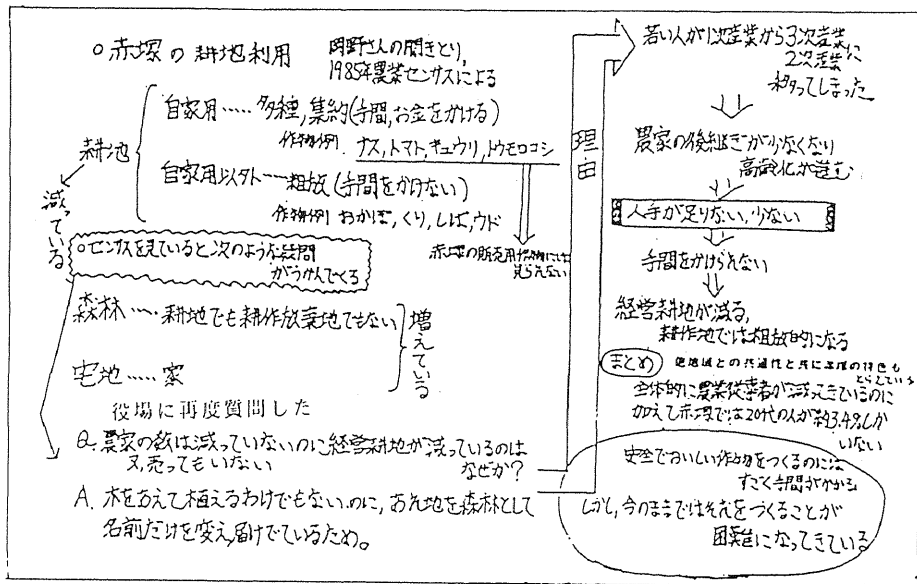 ○赤塚の耕地利用
岡野さんの聞きとり、
1985年農業センサスによる
耕地
自家用……多種,集約(手間,お金をかける)
作物例 ナス,トマト,キュウリ,トウモロコシ
自家用以外……粗放(手間をかけない)
作物例 おかぼ,くり,しば,ウド
赤塚の販売用作物には
見られない
減っている
○センサスを見ていると次のような疑問
がうかんでくる
森林……耕地でも耕作放棄地でもない
宅地……家
増えている
役場に再度質問した
Q. 農家の数は減っていないのに経営耕地が減っているのは
又,売ってもいない なぜか?
A. 木をあえて植えるわけでもないのに,あれ地を森林として
名前だけを変え,届けでているため。
理由
若い人が1次産業から3次産業に
2次産業
移ってしまった
農家の後継ぎが少なくなり
高齢化が進む
人手が足りない,少ない
手間をかけられない
経営耕地が減る,
耕作地では粗放的になる
まとめ
他地域との共通性と共に赤塚の特色も
とらえている
全体的に農業従事者が減ってきているのに
加えて赤塚では20代の人が約3.4%しか
いない
安全でおいしい作物をつくるのには
すごく手間がかかる
しかし,今のままではそれをつくることが
困難になってきている